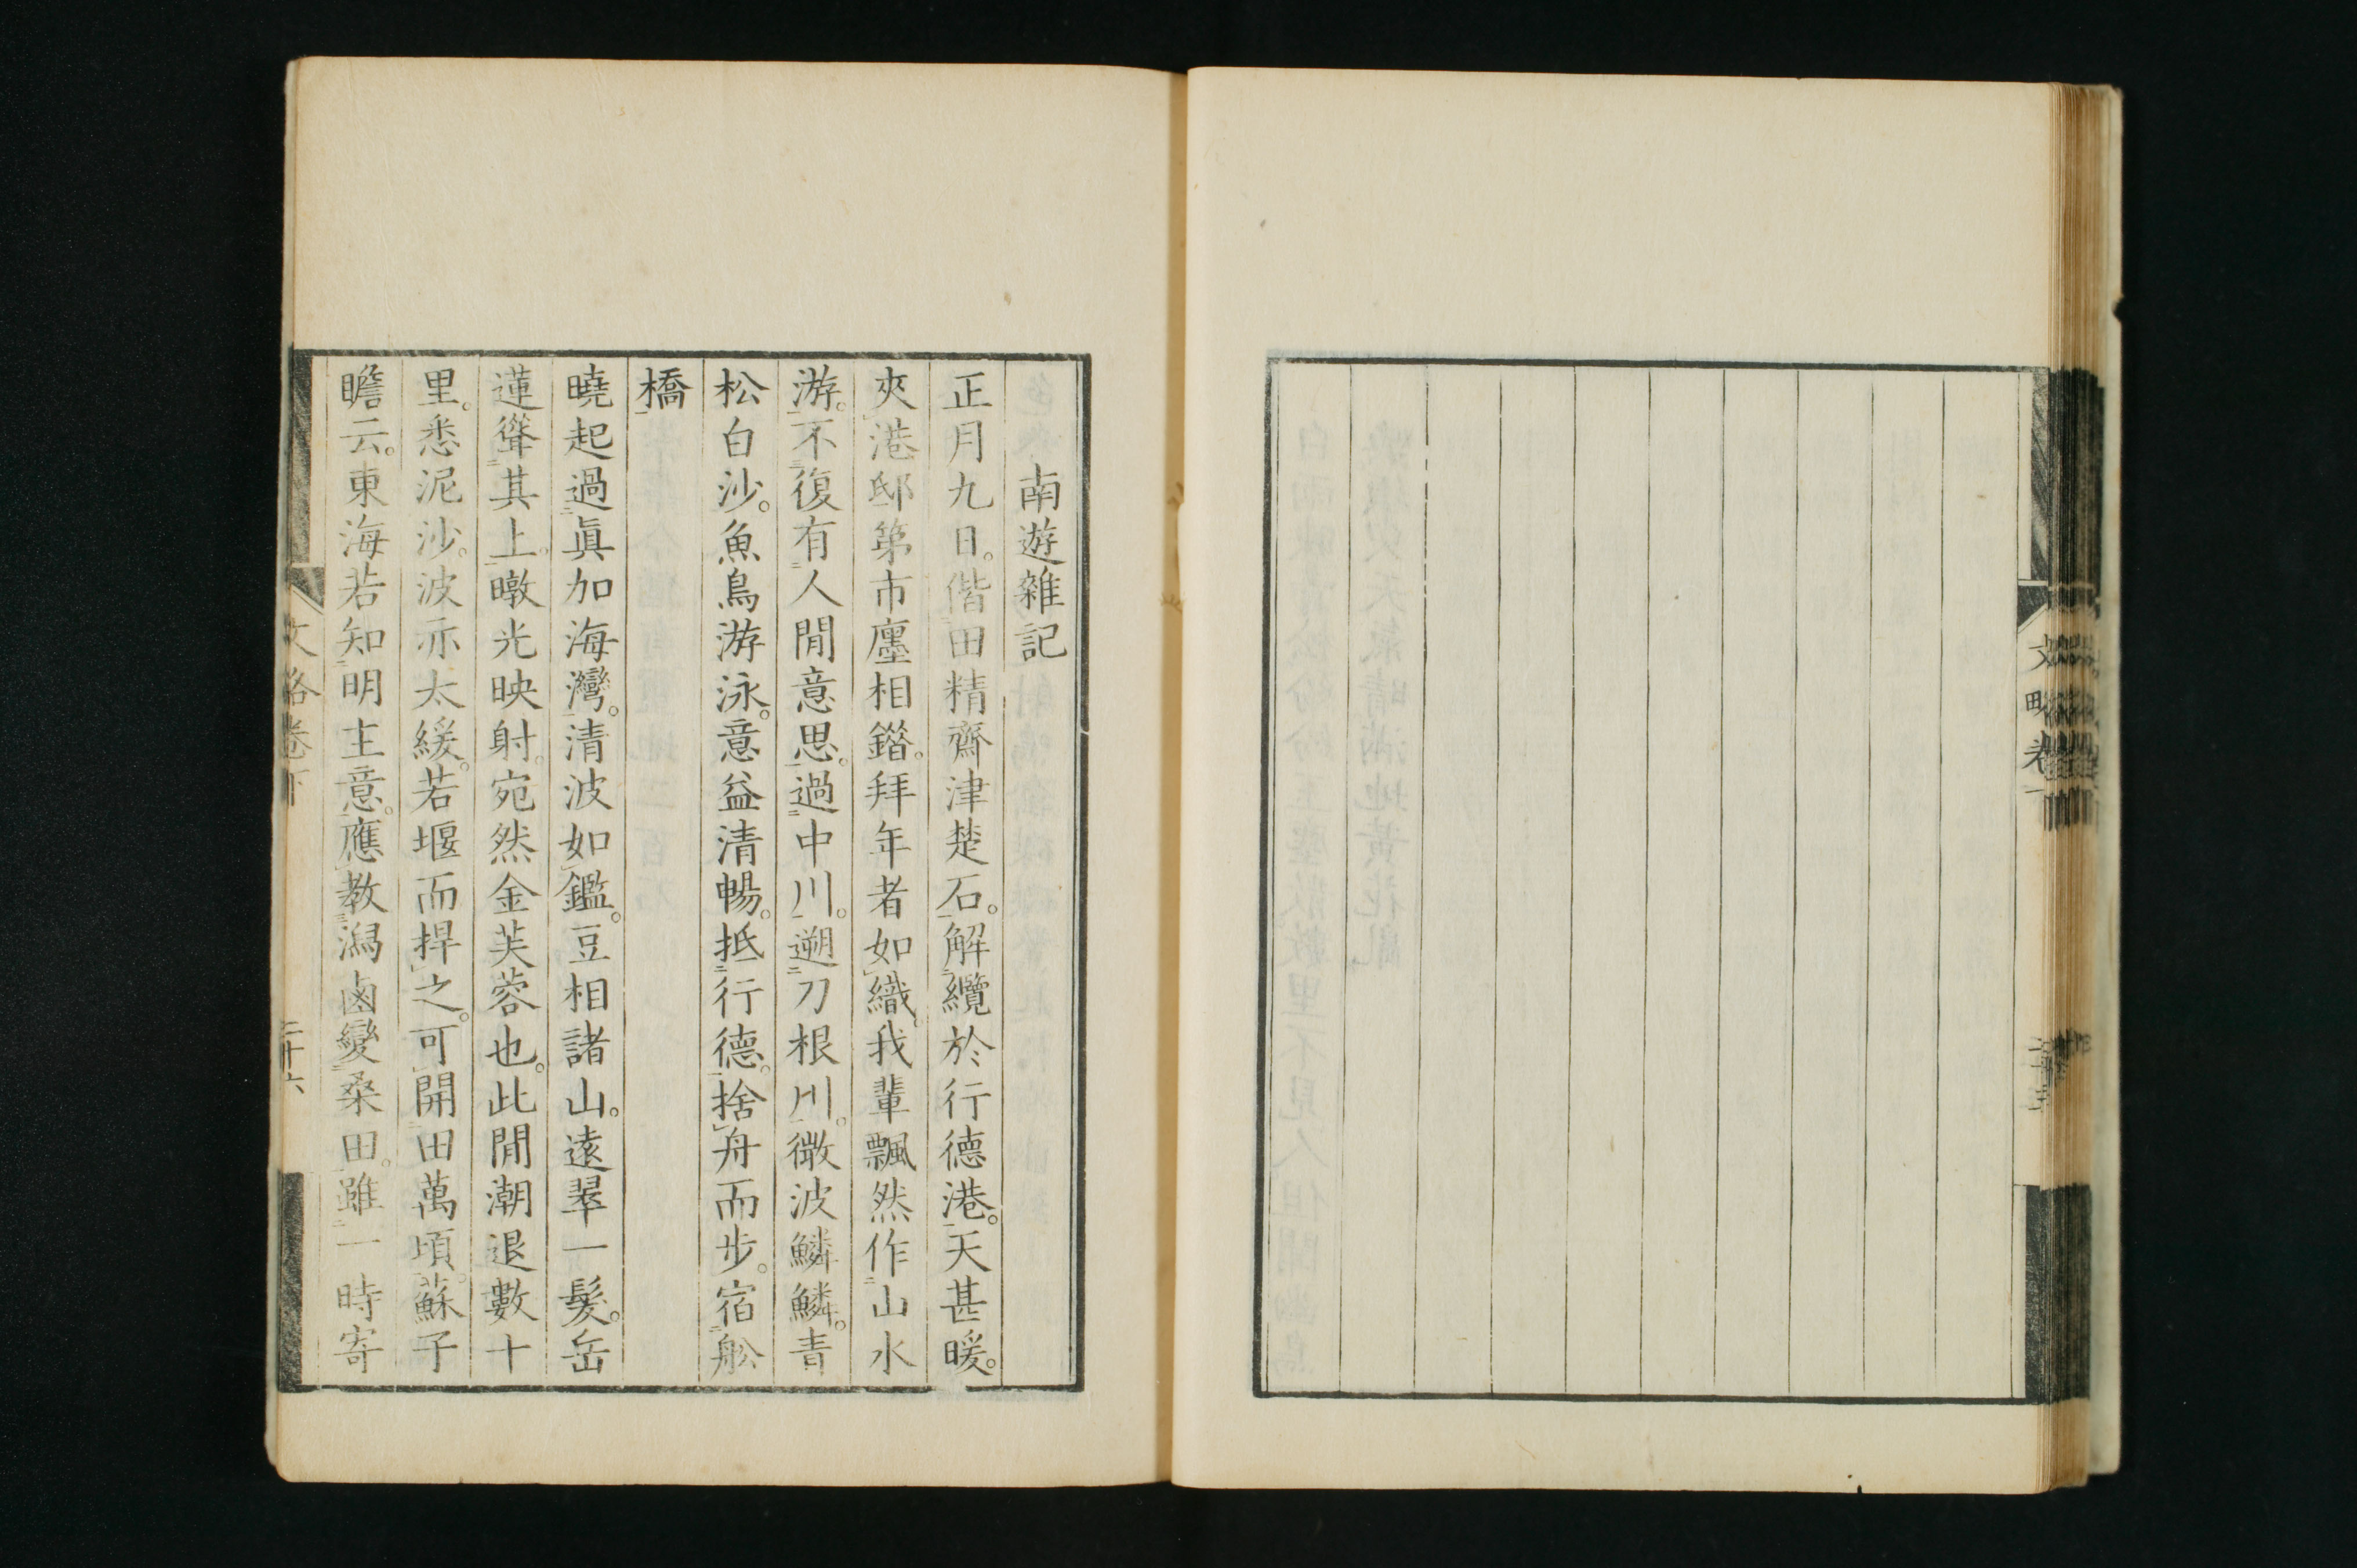 南遊雜記
正月九日。偕田精齋津楚石。解纜於行德港。天甚暖。
夾港邸第市廛相錯。拜年者如織。我輩飄然作山水
游。不復有人間意思。過中川。遡刀根川。微波鱗鱗。青
松白沙。魚鳥游泳。意益清暢。抵行德。捨舟而步。宿舩
橋
曉起過眞加海灣。清波如鑑。豆相諸山。遠翠一髮。岳
蓮聳其上。暾光映射。宛然金芙蓉也。此間潮退數十
里。悉泥沙。波亦太緩。若堰而捍之。可開田萬頃。蘇子
瞻云。東海若知明主意。應教潟鹵變桑田。雖一時寄
文略卷下
二十六